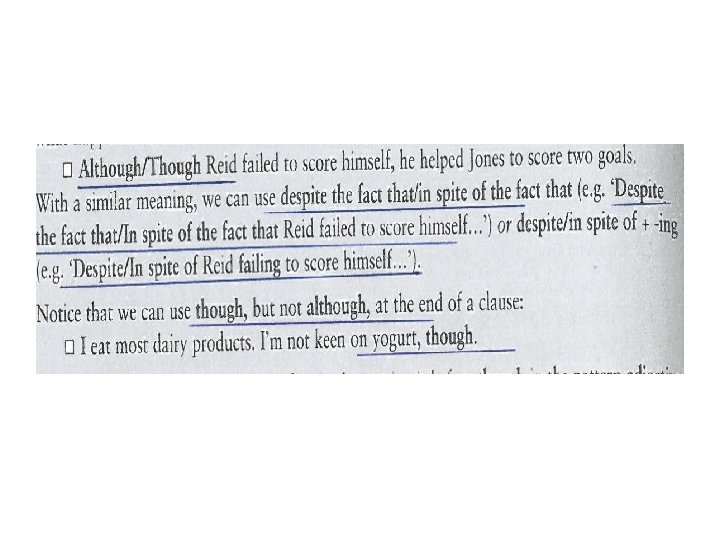 □ Although/Though Reid failed to score himself, he helped Jones to score two goals.
With a similar meaning, we can use despite the fact that/in spite of the fact that (e.g. ‘Despite
the fact that/In spite of the fact that Reid failed to score himself…’) or despite/in spite of + -ing
(e.g. ‘Despite/In spite of Reid failing to score himself…’).
Notice that we can use though, but not although, at the end of a clause:
□ I eat most dairy products. I’m not keen on yogurt, though.